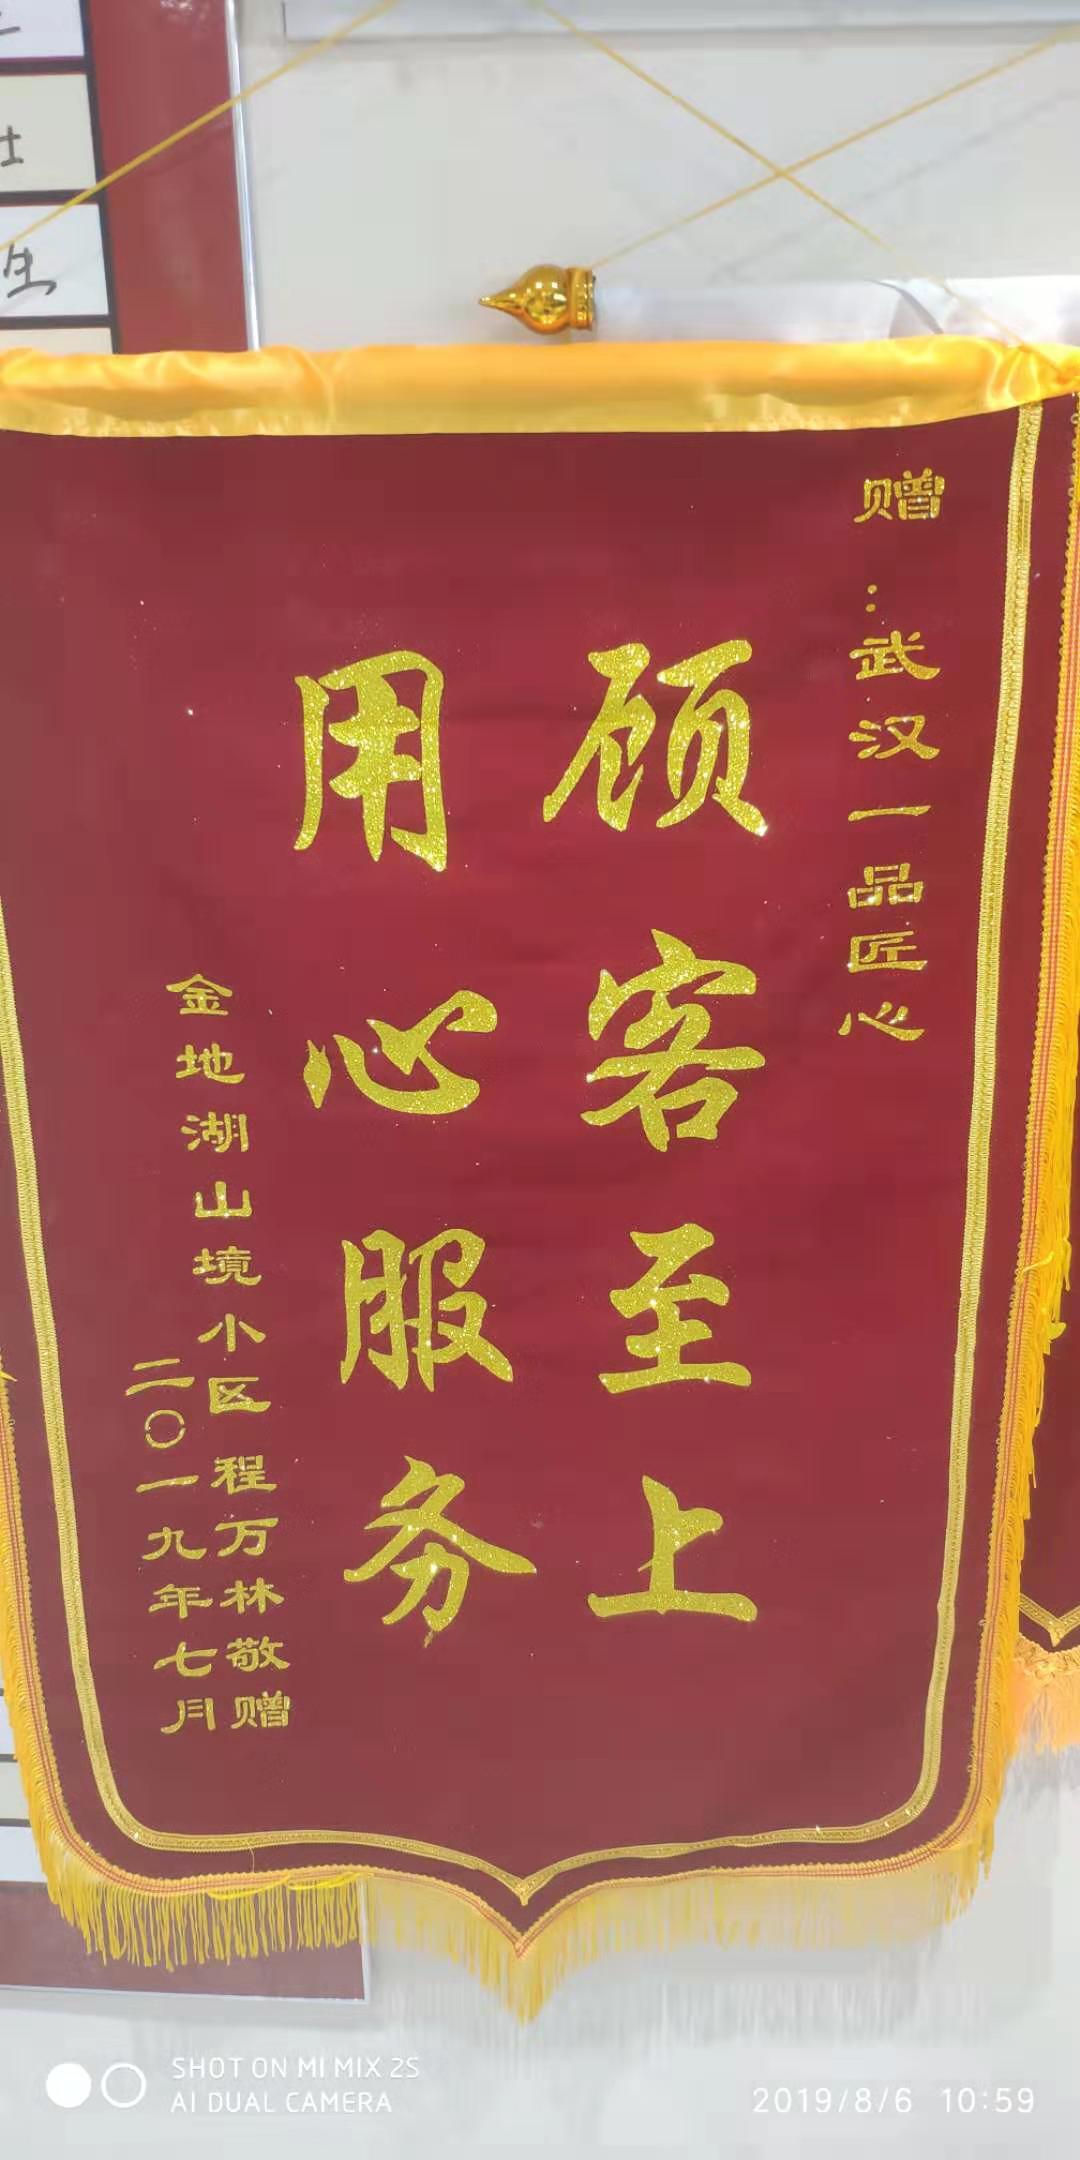 赠:武汉一品匠心
顾客至上
用心服务
金地湖山境小区程万林敬赠
二〇一九年七月
生
SHOT ON MI MIX 2S
AI DUAL CAMERA
2019/8/6 10:59